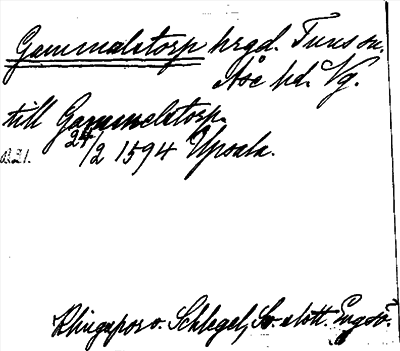 Gammalstorp hrgd. Tuns sn.
Åse hd. Vg.
till Gammelstorp.
24/2 1594 Upsala.
Klingspor o. Schlegel, Sv. slott. Engsö.